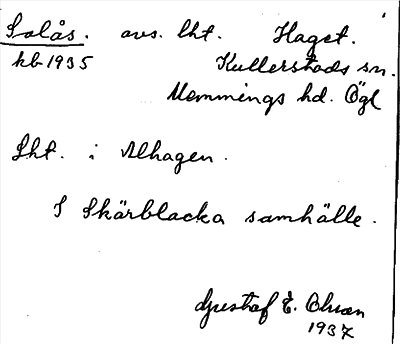 Solås. avs. lht. Haget.
kb 1935 Kullerstads sn.
Memmings hd. Ögl
Lht. i Alhagen.
I Skärblacka samhälle.
Gustaf E. Olson
1937